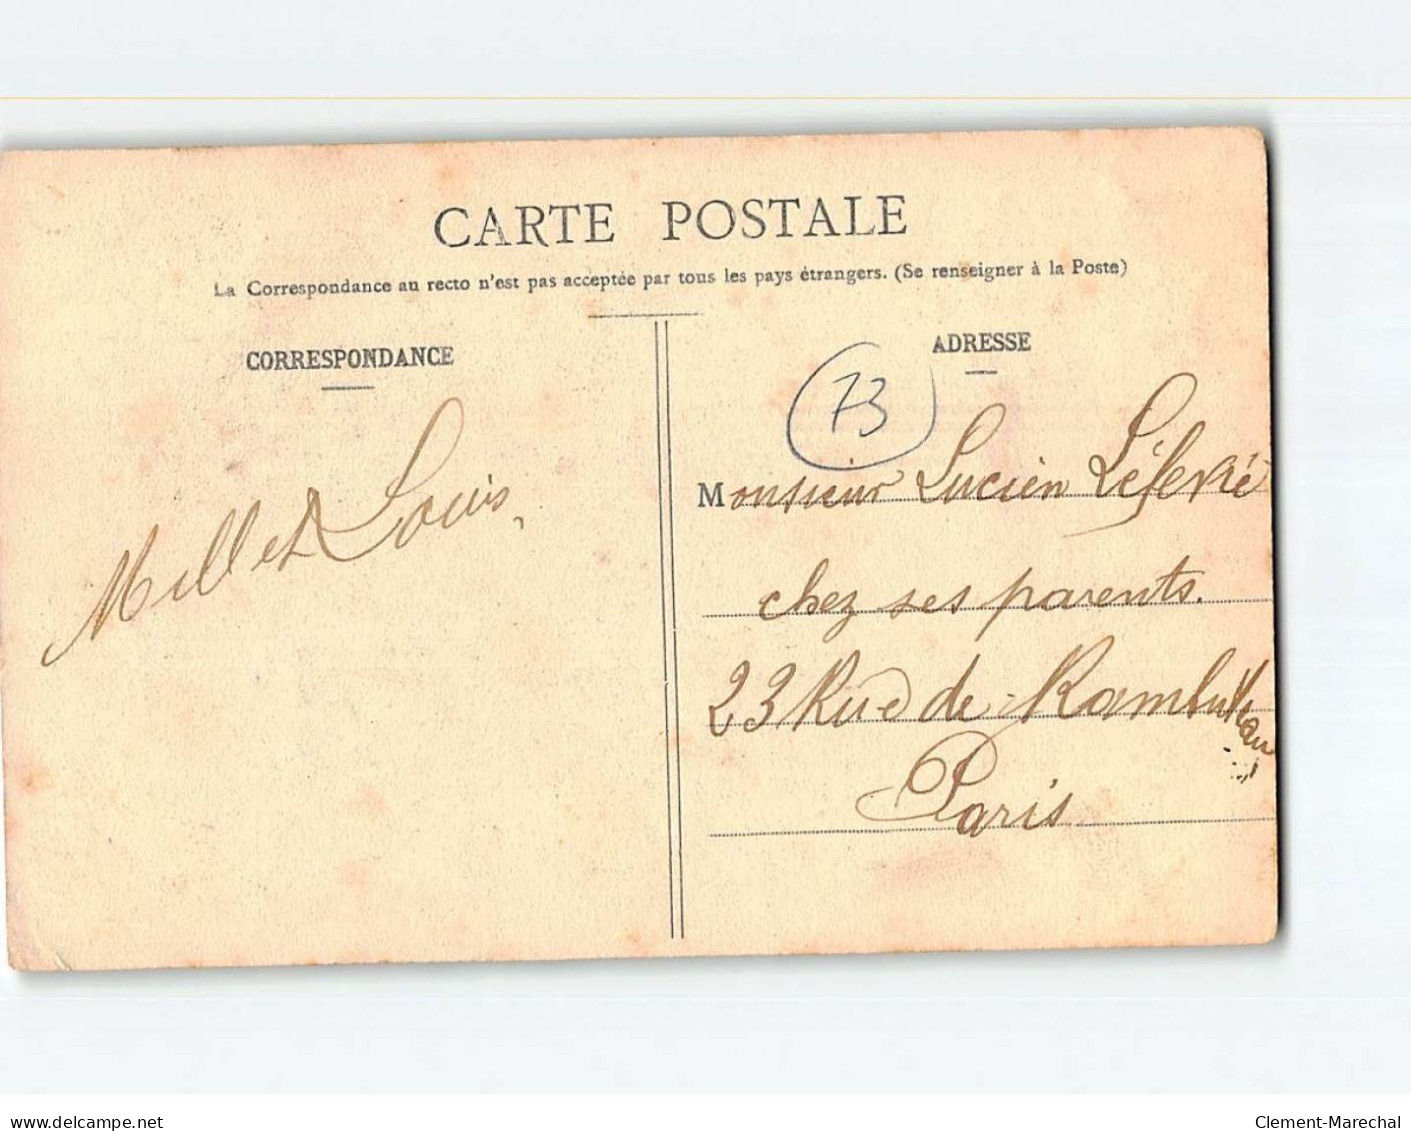 CARTE POSTALE
La Correspondance au recto n'est pas acceptée par tous les pays étrangers. (Se renseigner à la Poste)
CORRESPONDANCE
ADRESSE
73
Millet Louis,
Monsieur Lucien
chez ses parents.
23 Rue de Rambuteau
Paris
delcampe.net
Clement-Marechal